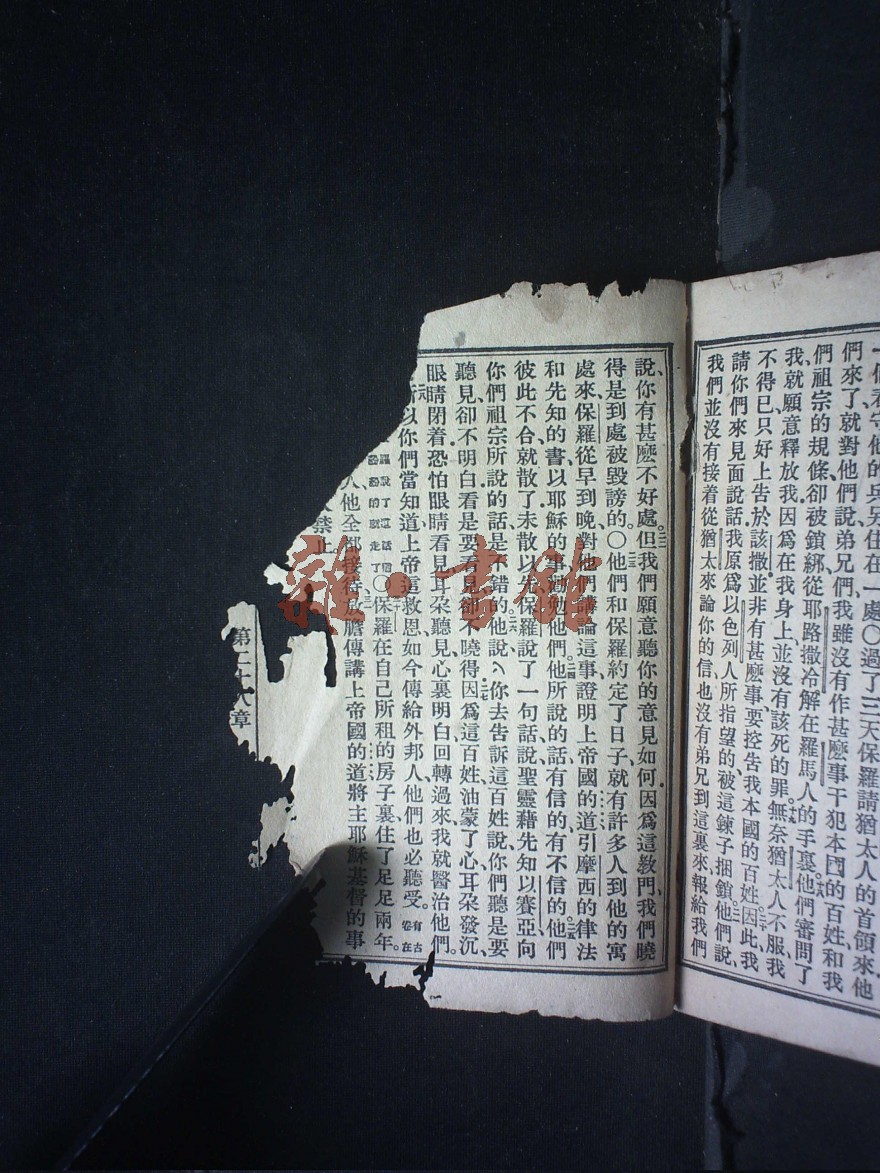 們來了就對他們說弟兄們、我雖沒有作甚麽事干犯本國的百姓和我
們祖宗的規條、卻被鎖綁、從耶路撒冷解在羅馬人的手裏、他們審問了
我、就願意釋放我、因爲在我身上、並沒有該死的罪、無奈猶太人不服、我
不得已只好上告於該撒、並非有甚麽事、要控告我本國的百姓、因此、我
請你們來見面說話、我原爲以色列人所指望的、被這鍊子捆鎖、他們說、
我們並沒有接着從猶太來論你的信、也沒有弟兄到這裏來、報給我們
說、你有甚麽不好處。但我們願意聽你的意見如何、因爲這敎門、我們曉
得是到處被毀謗的。〇他們和保羅約定了日子、就有許多人到他的寓
處來、保羅從早到晚、對他們講論這事、證明上帝國的道、引摩西的律法
和先知的書、以耶穌的事勸勉他們。他所說的話、有信的、有不信的。他們
彼此不合、就散了、未散以先、保羅說了一句話、說聖靈藉先知以賽亞、向
你們祖宗所說的話、是不錯的。他說、你去告訴這百姓說、你們聽是要
聽見、卻不明白、看是要看見、卻不曉得、因爲這百姓、油蒙了心、耳朶發沉、
眼睛閉着、恐怕眼睛看見、耳朶聽見、心裏明白、回轉過來、我就醫治他們。
所以你們當知道、上帝這救恩、如今傳給外邦人、他們也必聽受。有古卷在
〇保羅在自己所租的房子裏、住了足足兩年、
人、他全都接待、放膽傳講上帝國的道、將主耶穌基督的事
禁止
第二十八章
雜·書館